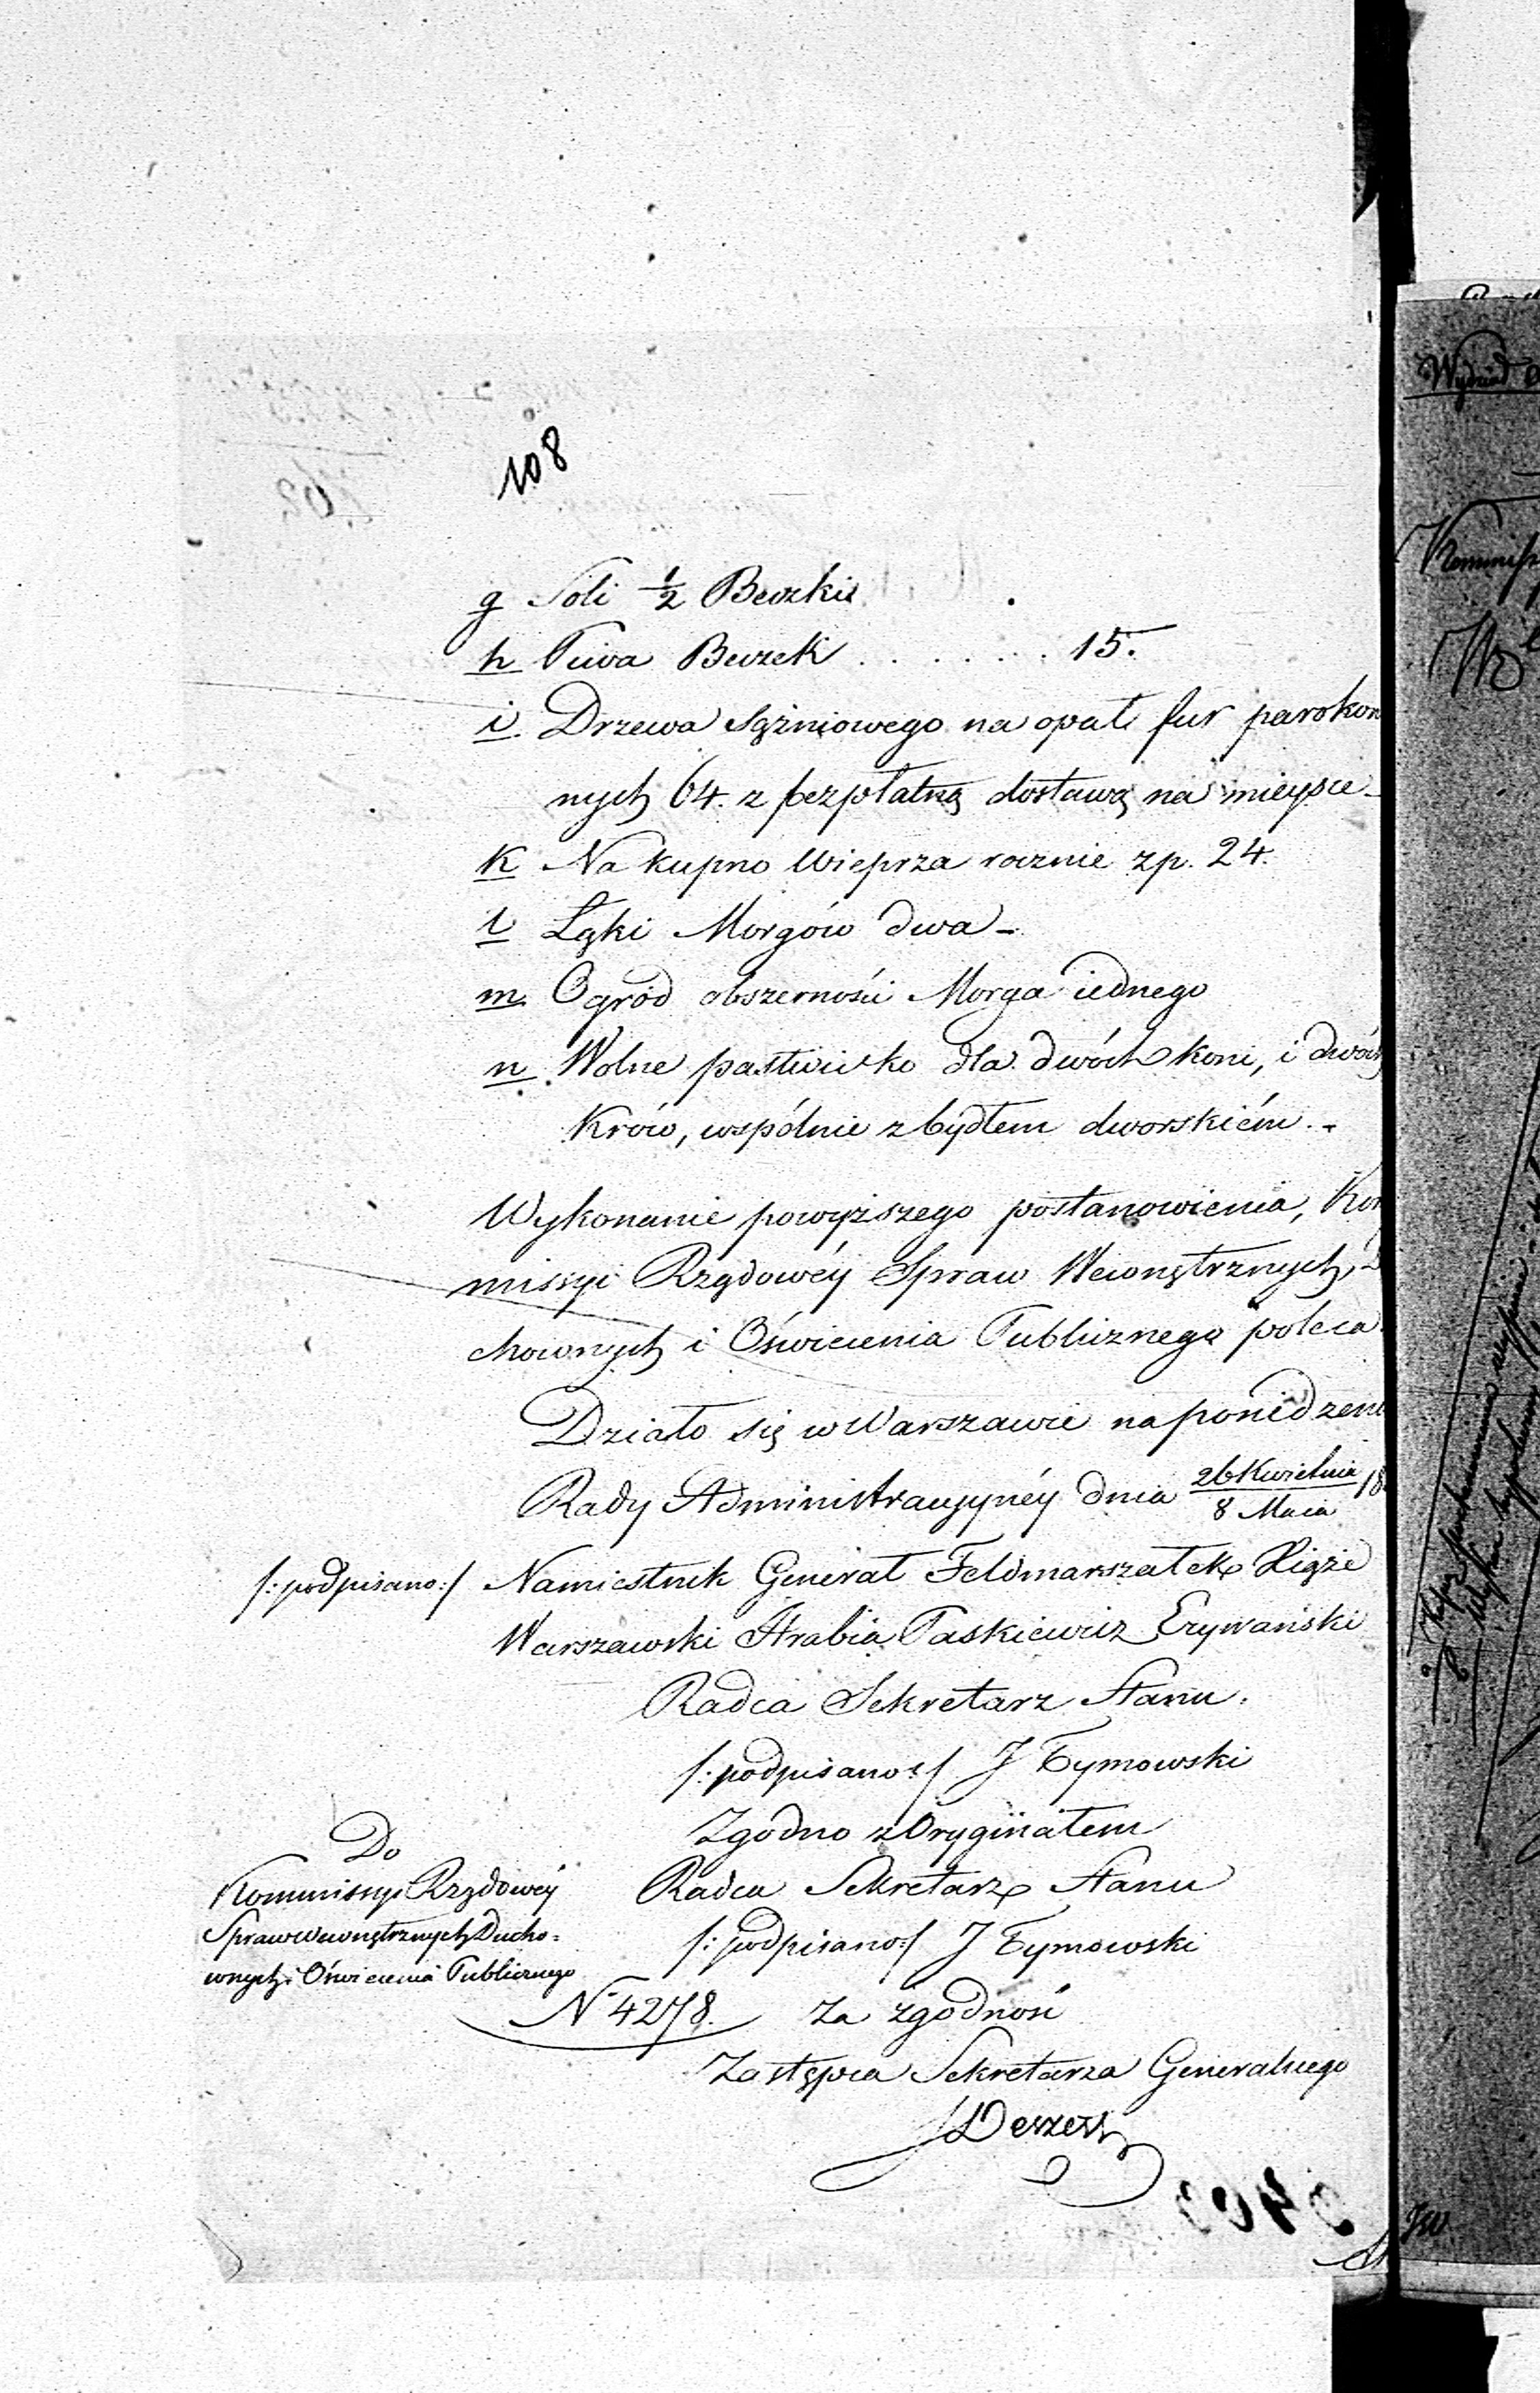 108
g Soli ½ Beczki
h Piwa Beczek . . . . . . . 15.
i. Drzewa sążniowego na opał fur parokon
nych 64. z bezpłatną dostawą na mieysce
K Na kupno Wieprza rocznie zp. 24.
l Łąki Morgów dwa
m. Ogród obszerności Morga iednego
n. Wolne pastwisko dla dwóch koni, i dwóch
Krów, wspólnie z bydłem dworskiém.
Wykonanie powyższego postanowienia, Kom
missyi Rządowéy Spraw Wewnętrznych, D
chownych i Oświecenia Publicznego poleca.
Działo się w Warszawie na posiedzeni
Rady Administracyynéy dnia 26 Kwietnia / 8 Maia 18
/:podpisano:/ Namiestnik Generał Feldmarszałek Xiąże
Warszawski Hrabia Paskiewicz Erywański
Radca Sekretarz Stanu.
/:podpisano:/ J Tymowski
Zgodno z Oryginałem
Do
Kommissyi Rządowéy
Radca Sekretarz Stanu
Spraw Wewnętrznych Ducho=
/:podpisano:/ J Tymowski
wnych i Oświecenia Publicznego
N 4278.
Za zgodność
Zastępca Sekretarza Generalnego
Wydział